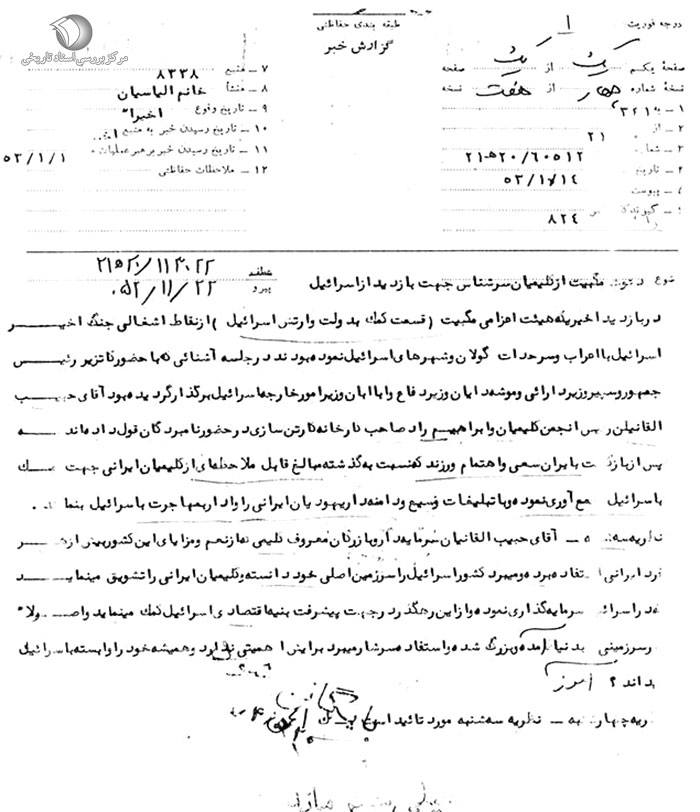 مرکز بررسی اسناد تاریخی
طبقه بندی حفاظتی
گزارش خبر
درجه فوریت ۱
صفحهٔ یکم یک از یک صفحه
نسخهٔ شماره چهار از هفت نسخه
۱ - به ۳۲۱
۲ - از ۲۱
۳ - شماره ۲۰/۶۰۵۱۲ه‍۲۱
۴ - تاریخ ۵۳/۱/۱۴
پیوست
۸۲۴
۷ - منبع ۸۳۳۸
۸ - منشأ خانم الیاسیان
۹ - تاریخ وقوع اخیرا"
۱۰ - تاریخ رسیدن خبر به منبع
۱۱ - تاریخ رسیدن خبر برهبر عملیات ۵۳/۱/۱
۱۲ - ملاحظات حفاظتی
عطف
پیرو ۵۲/۱۱/۲۲
موضوع دعوت مگبیت از کلیمیان سرشناس جهت بازدید از اسرائیل
در بازدید اخیر یکه هیئت اعزامی مگبیت (قسمت کمک بدولت وارتش اسرائیل) از نقاط اشغالی جنگ اخیر
اسرائیل با اعراب وسرحدات گولان وشهرهای اسرائیل نموده بودند در جلسه آشنائی که با حضور کاتزیر رئیس
جمهور وسپیر وزیر دارائی وموشه دایان وزیر دفاع وابا ابان وزیر امور خارجه اسرائیل برگذار گردیده بود آقای حبیب
القانیان رئیس انجمن کلیمیان وابراهیم راد صاحب کارخانه کارتن سازی در حضور نامبردگان قول داده اند که
پس از بازگشت بایران سعی واهتمام ورزند که نسبت به گذشته مبالغ قابل ملاحظه ای از کلیمیان ایرانی جهت کمک
باسرائیل جمع آوری نموده وبا تبلیغات وسیع ودامنه دار یهودیان ایرانی را وادار بمهاجرت باسرائیل بنمایند.
نظریه سه شنبه - آقای حبیب القانیان سرمایه دار وبازرگان معروف کلیمی که از نعم ومزایای این کشور بیش از هر
فرد ایرانی استفاده برده ومیبرد کشور اسرائیل را سرزمین اصلی خود دانسته وکلیمیان ایرانی را تشویق مینماید
که در اسرائیل سرمایه گذاری نموده واز این رهگذر در جهت پیشرفت بنیه اقتصادی اسرائیل کمک مینماید واصولا"
سرزمینی بدنیا آمده وبزرگ شده واستفاده سرشار میبرد برایش اهمیتی ندارد وهمیشه خود را وابسته باسرائیل
میداند ؟ آموز
نظریه چهارشنبه - نظریه سه شنبه مورد تائید است